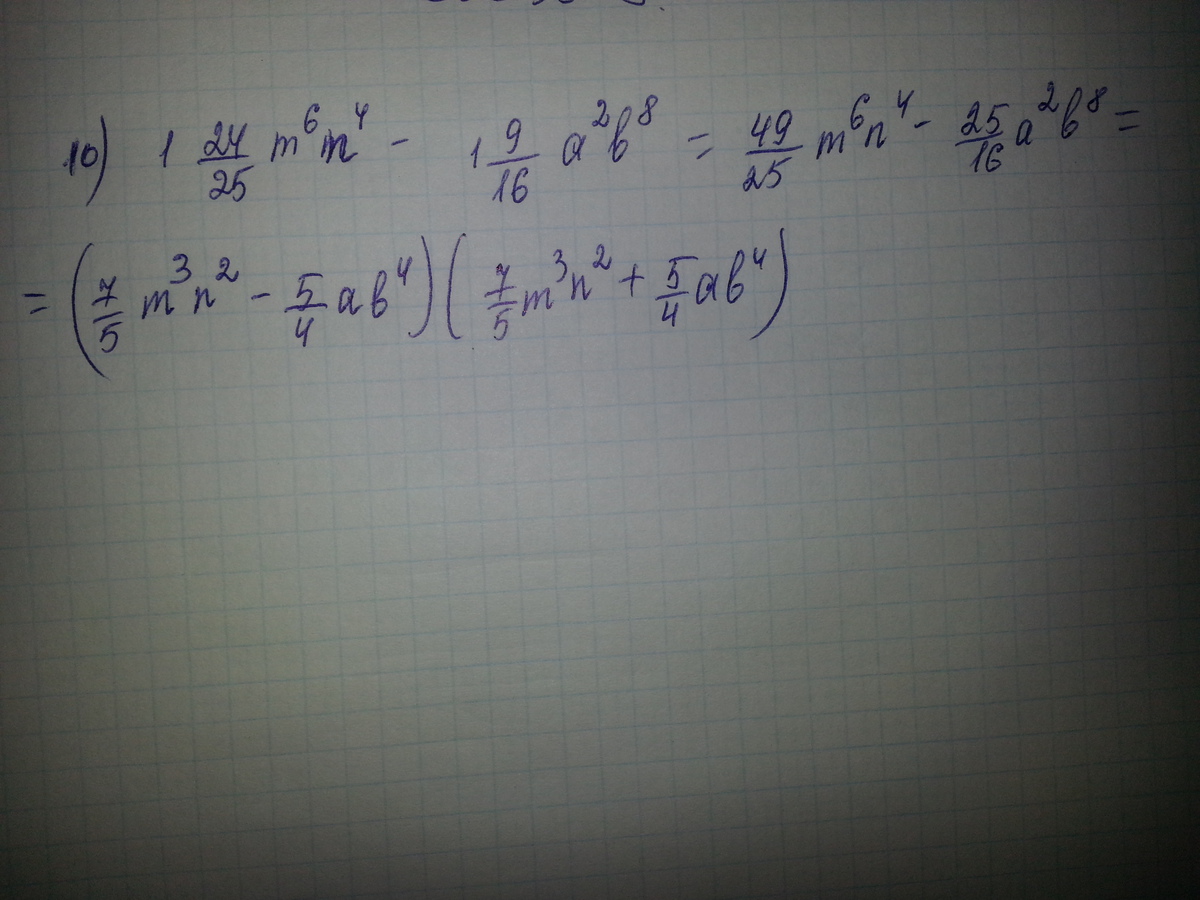 10) 1 24/25 m⁶n⁴ - 1 9/16 a²b⁸ = 49/25 m⁶n⁴ - 25/16 a²b⁸ =
= (7/5 m³n² - 5/4 ab⁴)(7/5 m³n² + 5/4 ab⁴)